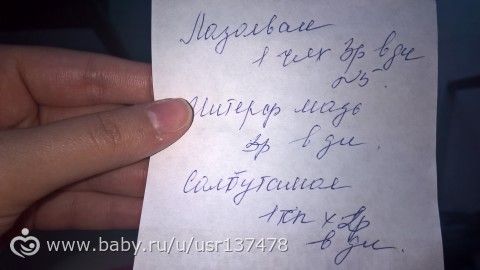 Лазолван
1 члж 3р в дн
№5.
Интерф мазь
3р в дн.
Салбутамол
1 кп х 2р
в дн.
www.baby.ru/u/usr137478